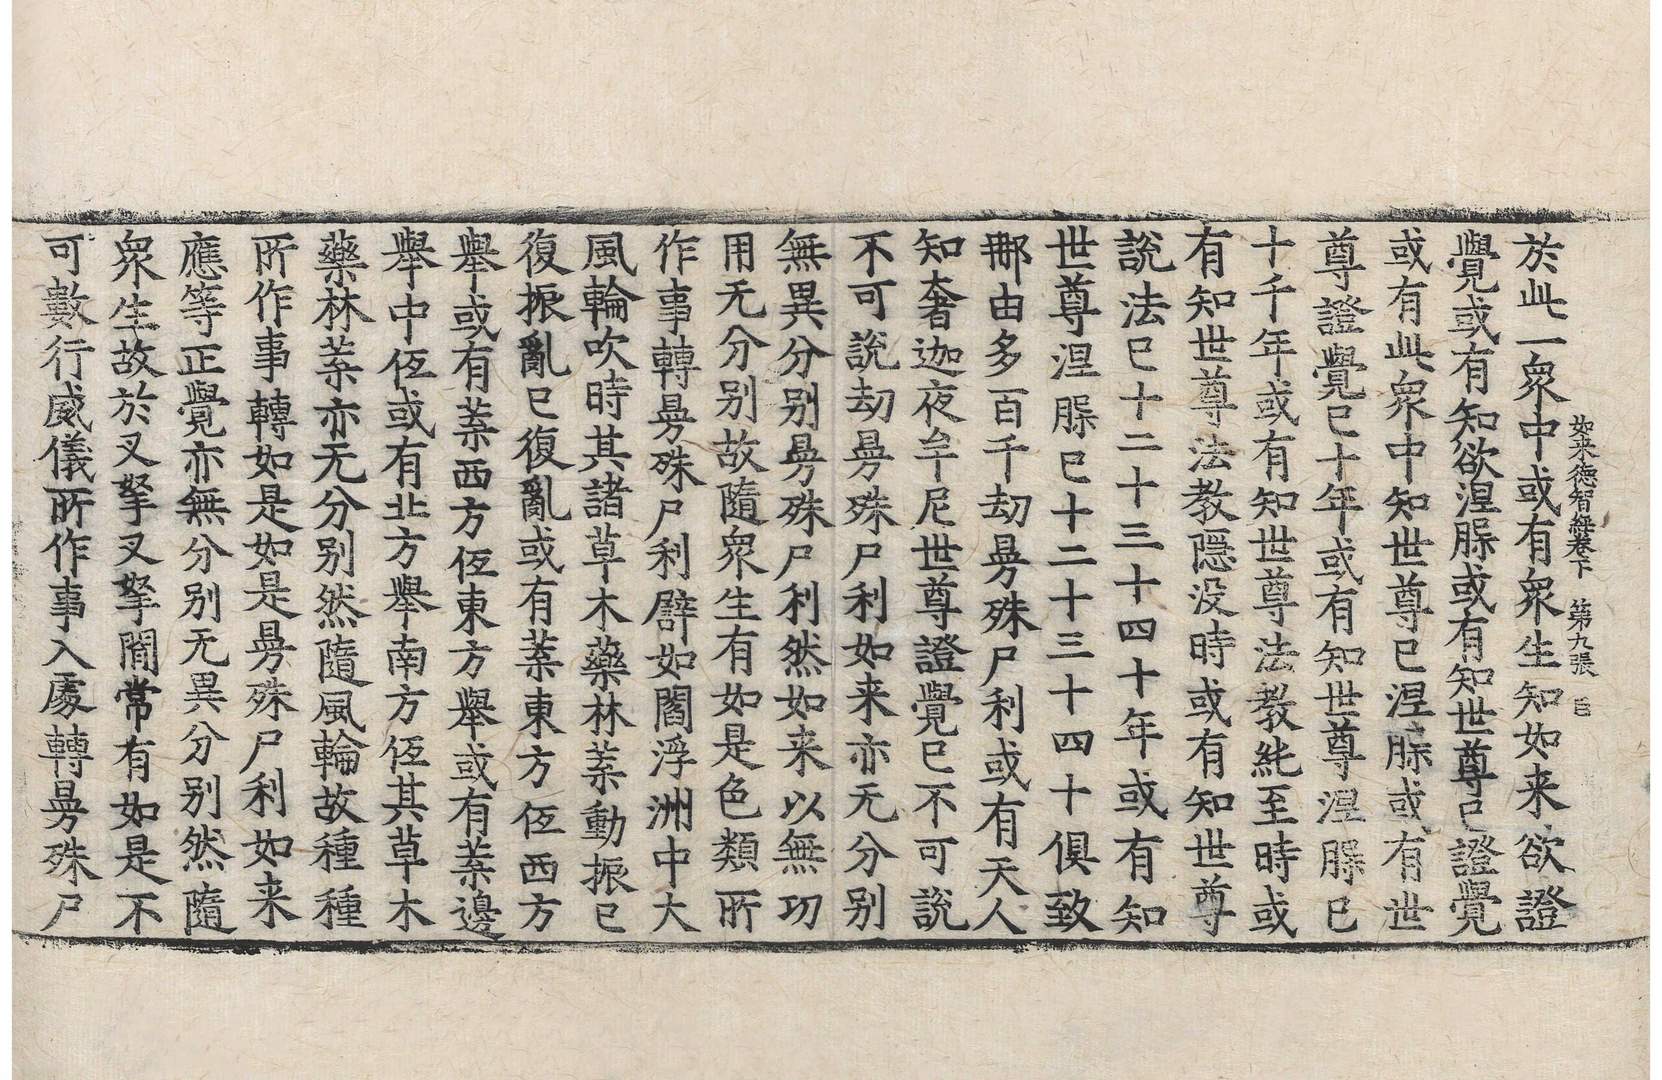 如来德智經卷下　第九張
於此一衆中或有衆生知如来欲證
覺或有知欲涅槃或有知世尊已證覺
或有此衆中知世尊已涅槃或有世
尊證覺已十年或有知世尊涅槃已
十千年或有知世尊法教純至時或
有知世尊法教隱没時或有知世尊
說法已十二十三十四十年或有知
世尊涅槃已十二十三十四十俱致
那由多百千劫曼殊尸利或有天人
知奢迦夜牟尼世尊證覺已不可說
不可說劫曼殊尸利如来亦无分别
無異分别曼殊尸利然如来以無功
用无分别故隨衆生有如是色類所
作事轉曼殊尸利譬如閻浮洲中大
風輪吹時其諸草木藥林葉動振已
復振亂已復亂或有葉東方低西方
舉或有葉西方低東方舉或有葉邊
舉中低或有北方舉南方低其草木
藥林葉亦无分别然隨風輪故種種
所作事轉如是如是曼殊尸利如来
應等正覺亦無分别无異分别然隨
衆生故於叉拏叉拏閒常有如是不
可數行威儀所作事入處轉曼殊尸